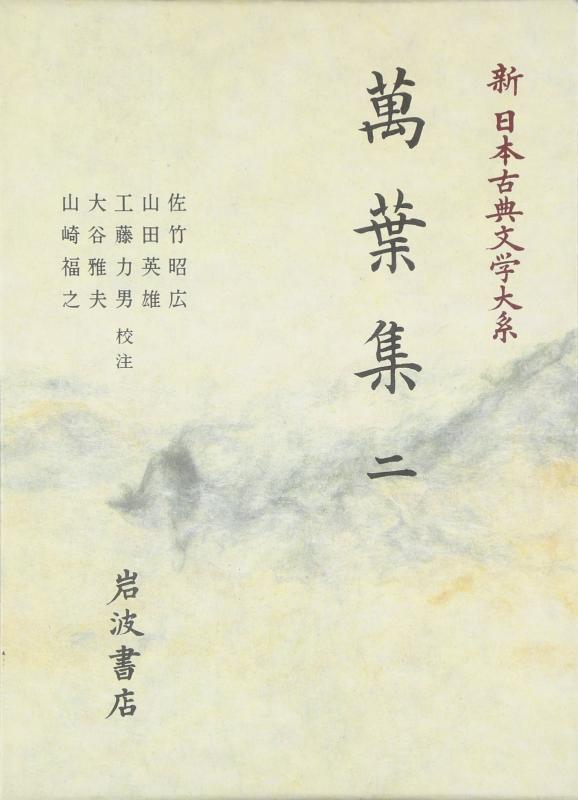 新 日本古典文学大系
萬葉集 二
佐竹昭広
山田英雄
工藤力男 校注
大谷雅夫
山崎福之
岩波書店